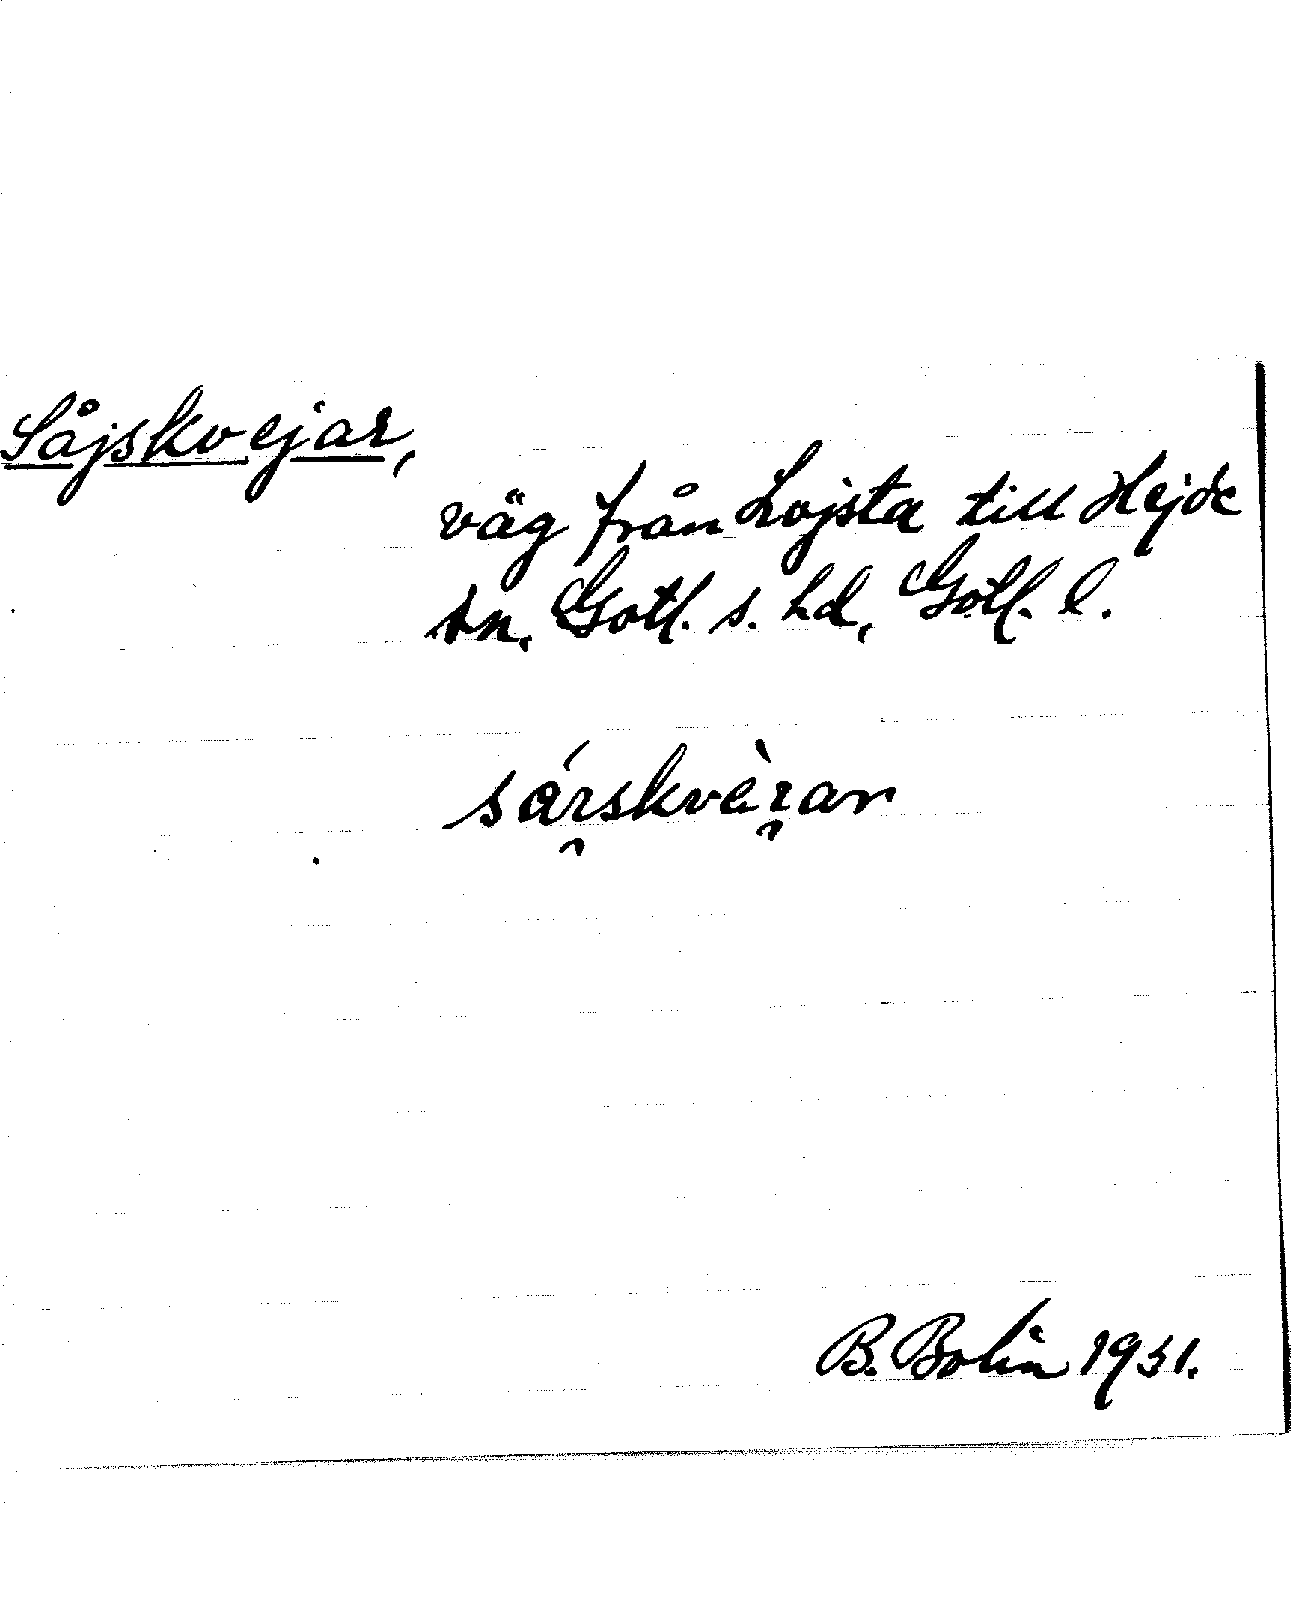 Såjskvejar,
väg från Lojsta till Hejde
sn. Gotl. s. hd, Gotl. l.
B. Bolin 1931.